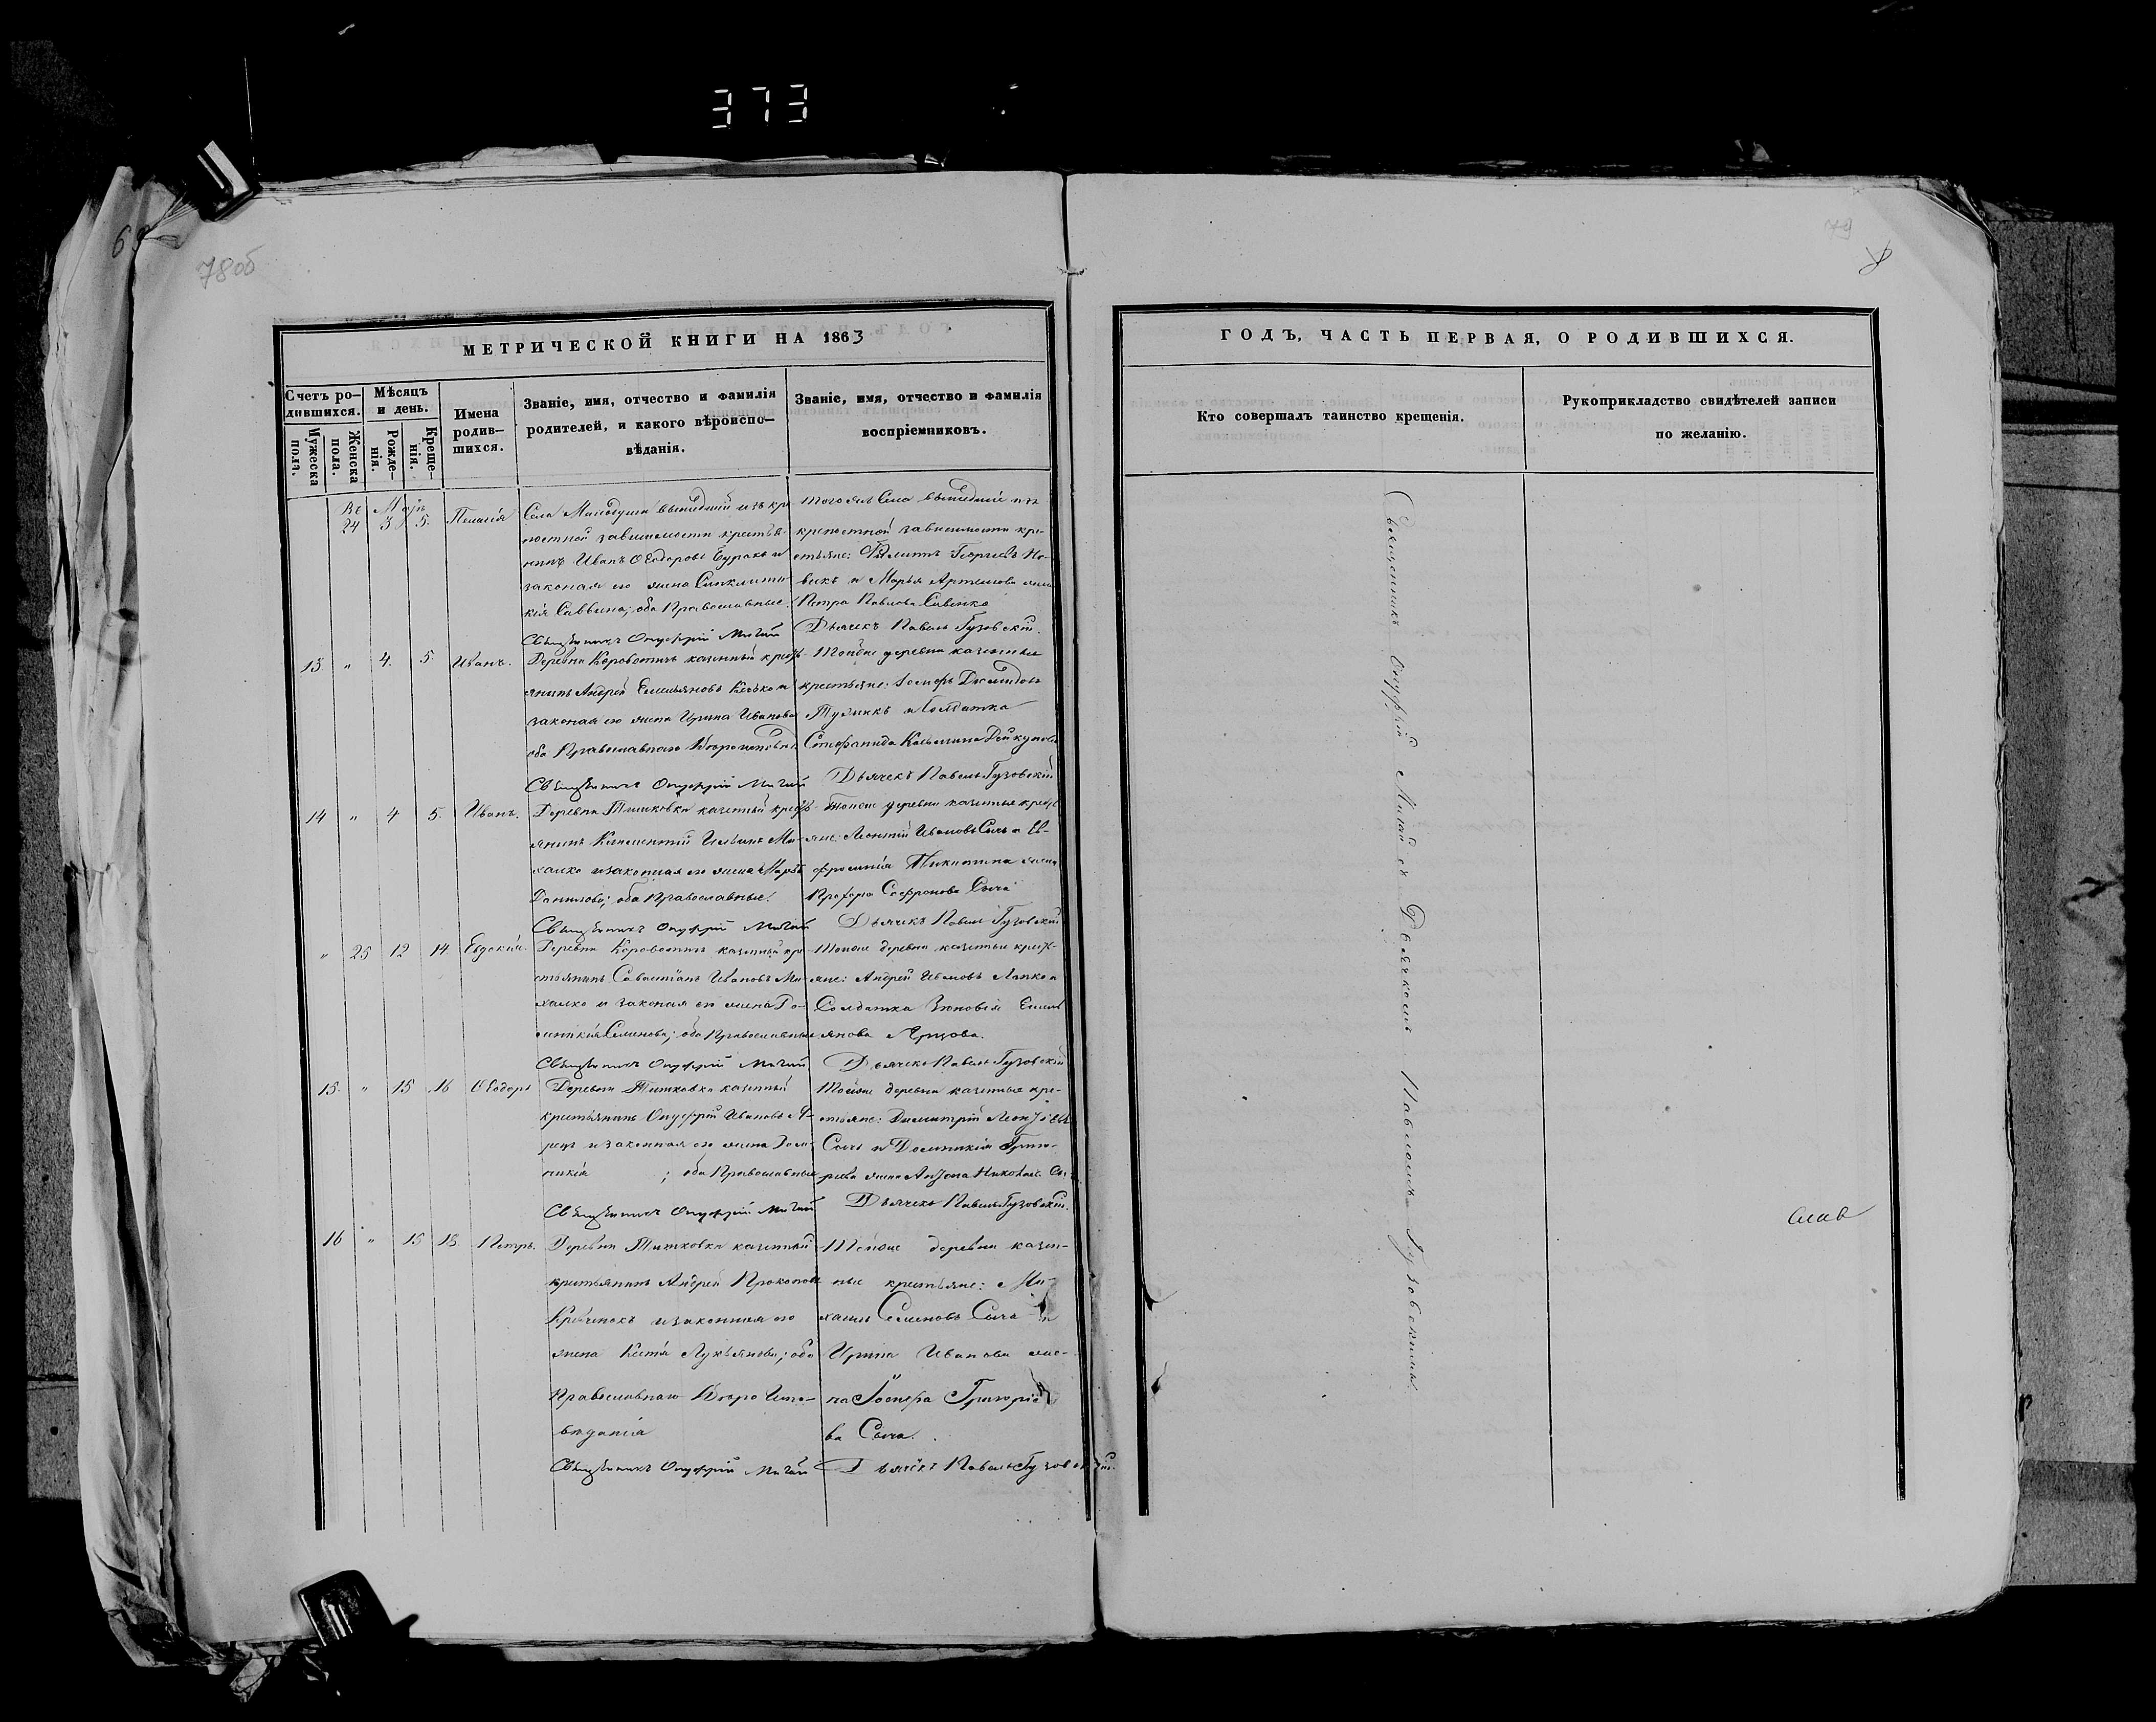 373
78об
79
МЕТРИЧЕСКОЙ КНИГИ НА 1863
Счетъ ро-
дившихся.
Мужеска
пола.
Женска
пола.
Мѣсяцъ
и день.
Рожде-
нія.
Креще-
нія.
Имена
родив-
шихся.
Званіе, имя, отчество и фамилія
родителей, и какого вѣроиспо-
вѣданія.
Званіе, имя, отчество и фамилія
воспріемниковъ.
Въ Маѣ
24 3 5. Пелагія
Села вышедшій изъ кре
постной зависимости крестья-
нинъ Иванъ Ѳеодоровъ Буракъ и
законая его жена Синклити-
кія Саввина; оба Православные.
Священникъ Онуфрій Мигай
того же Села вышедшіе изъ
крепостной зависимости кре-
стьяне: Филиппъ Георгіевъ Но-
викъ и Марья Артемова жена
Петра Павлова Савенка
Дьячекъ Павелъ Гузовскій.
13 " 4. 5. Иванъ.
Деревни Коробокъ казенный крест-
янинъ Андрей Емельяновъ и
законая его жена Ирина Иванова
оба Православнаго Вѣроисповѣд.
Священникъ Онуфрій Мигай
Тойже деревни казенные
крестьяне: Іосифъ Демидовъ
и Солдатка
Стефанида Козьмина
Дьячекъ Павелъ Гузовскій
14 " 4 5. Иванъ.
Деревни Тишковки казенный крест-
янинъ Климентій Ильинъ Ми-
халко и законная его жена Марѳа
Данилова; оба Православные.
Священникъ Онуфрій Мигай
Тойже деревни казенные крест
яне: Леонтій Ивановъ Сычъ и Ев-
фросинія Никитина жена
Прохора Софронова Сыча
Дьячекъ Павелъ Гузовскій
" 25 12 14. Евдокія.
Деревни казенный кре-
стьянинъ Савастіанъ Ивановъ Ми-
халко и законая его жена До-
миникія Семенова; оба Православные
Священникъ Онуфрій Мигай
Тойже деревни казенные крест-
яне: Андрей Ивановъ Лапко и
Солдатка Зиновія Емель
янова
Дьячекъ Павелъ Гузовскій
15. " 15 16 Ѳеодоръ
Деревни Тишковки казенный
крестьянинъ Онуфрій Ивановъ
и законная его жена Доми-
никія ; оба Православные
Священникъ Онуфрій Мигай
Тойже деревни казенные кре-
стьяне: Димитрій Леонтіевъ
Сычъ и Доминикія Григо-
рьева жена Антона Николаева
Дьячекъ Павелъ Гузовскій.
16 " 15 18. Петръ.
Деревни Тишковки казенный
крестьянинъ Андрей Прокоповъ
и законная его
жена Лукьянова; оба
Православнаго Вѣроиспо-
вѣданія
Священникъ Онуфрій Мигай
Тойже деревни казен-
ные крестьяне: Ми-
хаилъ Семеновъ Сычъ и
Ирина Иванова же-
на Іосифа Григоріе
ва Сыча.
Дьячекъ Павелъ Гузовскій.
ГОДЪ, ЧАСТЬ ПЕРВАЯ, О РОДИВШИХСЯ.
Кто совершалъ таинство крещенія.
Рукоприкладство свидѣтелей записи
по желанію.
Священникъ Онуфрій Мигай съ Дьячкомъ Павломъ Гузовскимъ.